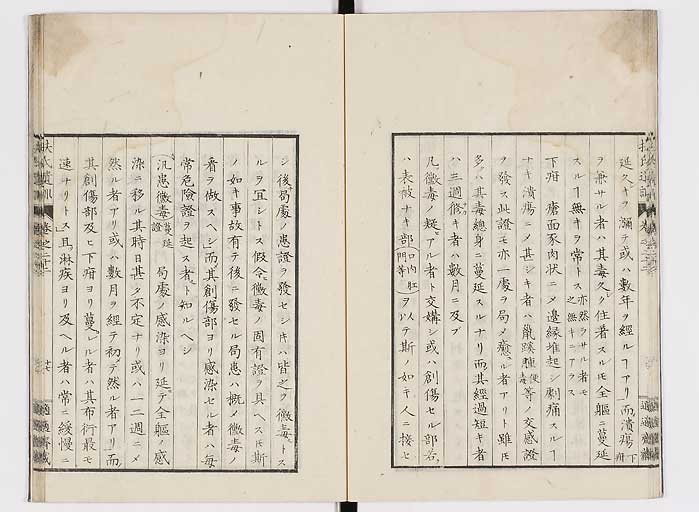 延久キヲ瀰テ或ハ數年ヲ經ルヿアリ而潰瘍下疳
ヲ無サル者ハ其毒久ク住着スルモ全軀ニ蔓延
スルヿ無キヲ常トス亦然ラサル者モ之無キニアラス
下疳 瘡面豕肉狀ニメ邊緣堆起シ劇痛スルヿ
ナキ潰瘍ニメ甚シキ者ハ胤蹊腫便毒等ノ交感證
ヲ發ス此證モ亦一處ヲ局メ癒ル者アリト雖モ
多ハ其毒總身ニ蔓延スルナリ而其經過短キ者
ハ三週修キ者ハ數月ニ及ブ
凡黴毒ノ疑アル者ト交媾シ或ハ創傷セル部若
ハ表被ナキ部口内肛門等ヲ以テ斯ノ如キ人ニ接セ
シ後局處ノ患證ヲ發セシキハ皆之ヲ黴毒トス
ルヲ冝シトス假令黴毒ノ固有證ヲ具ヘスモ斯
ノ如キ事故有テ後ニ發セル局患ハ概メ黴毒ノ
看ヲ做スヘシ而其創傷部ヨリ感染セル者ハ毎
常危險證ヲ起ス者ト知ルヘシ
汎患黴毒蔓延證 局處ノ感染ヨリ延テ全軀ノ感
染ニ移ル其時日甚タ不定ナリ或ハ一二週ニメ
然ル者アリ或ハ數月ヲ經テ初テ然ル者アリ而
其創傷部及ヒ下疳ヨリ蔓ル者ハ其布衍最モ
速ナリトス且淋疾ヨリ及ヘル者ハ常ニ緩慢ニ
扶氏遺訓 卷之二十二
十七
適適齋藏